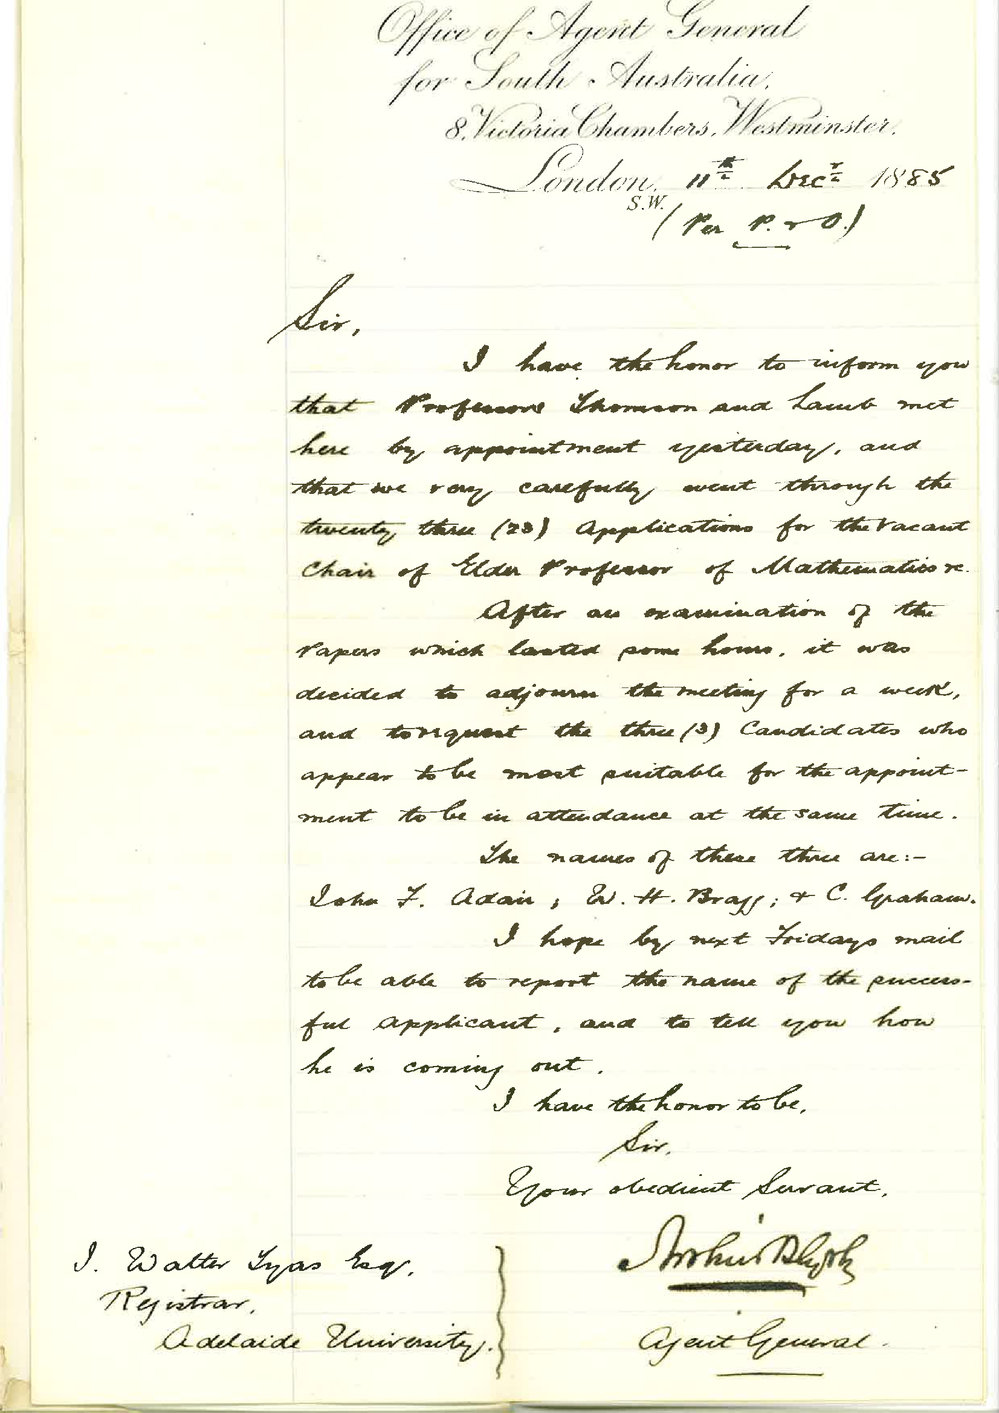 Office of Agent General
for South Australia,
8, Victoria Chambers, Westminster,
London, 11th Decr 1885
S.W.
(Per P. & O.)
Sir,
I have the honor to inform you
that Professors Thomson and Lamb met
here by appointment yesterday, and
that we very carefully went through the
twenty three (23) applications for the vacant
Chair of Elder Professor of Mathematics &c.
After an examination of the
papers which lasted some hours, it was
decided to adjourn the meeting for a week,
and to request the three (3) Candidates who
appear to be most suitable for the appoint-
ment to be in attendance at the same time.
The names of these three are:-
John F. Adair, W. H. Bragg; & C. Graham.
I hope by next Fridays mail
to be able to report the name of the success-
ful applicant, and to tell you how
he is coming out.
I have the honor to be,
Sir,
Your obedient Servant,
Arthur Blyth
Agent General.
J. Walter Tyas Esq.
Registrar,
Adelaide University.